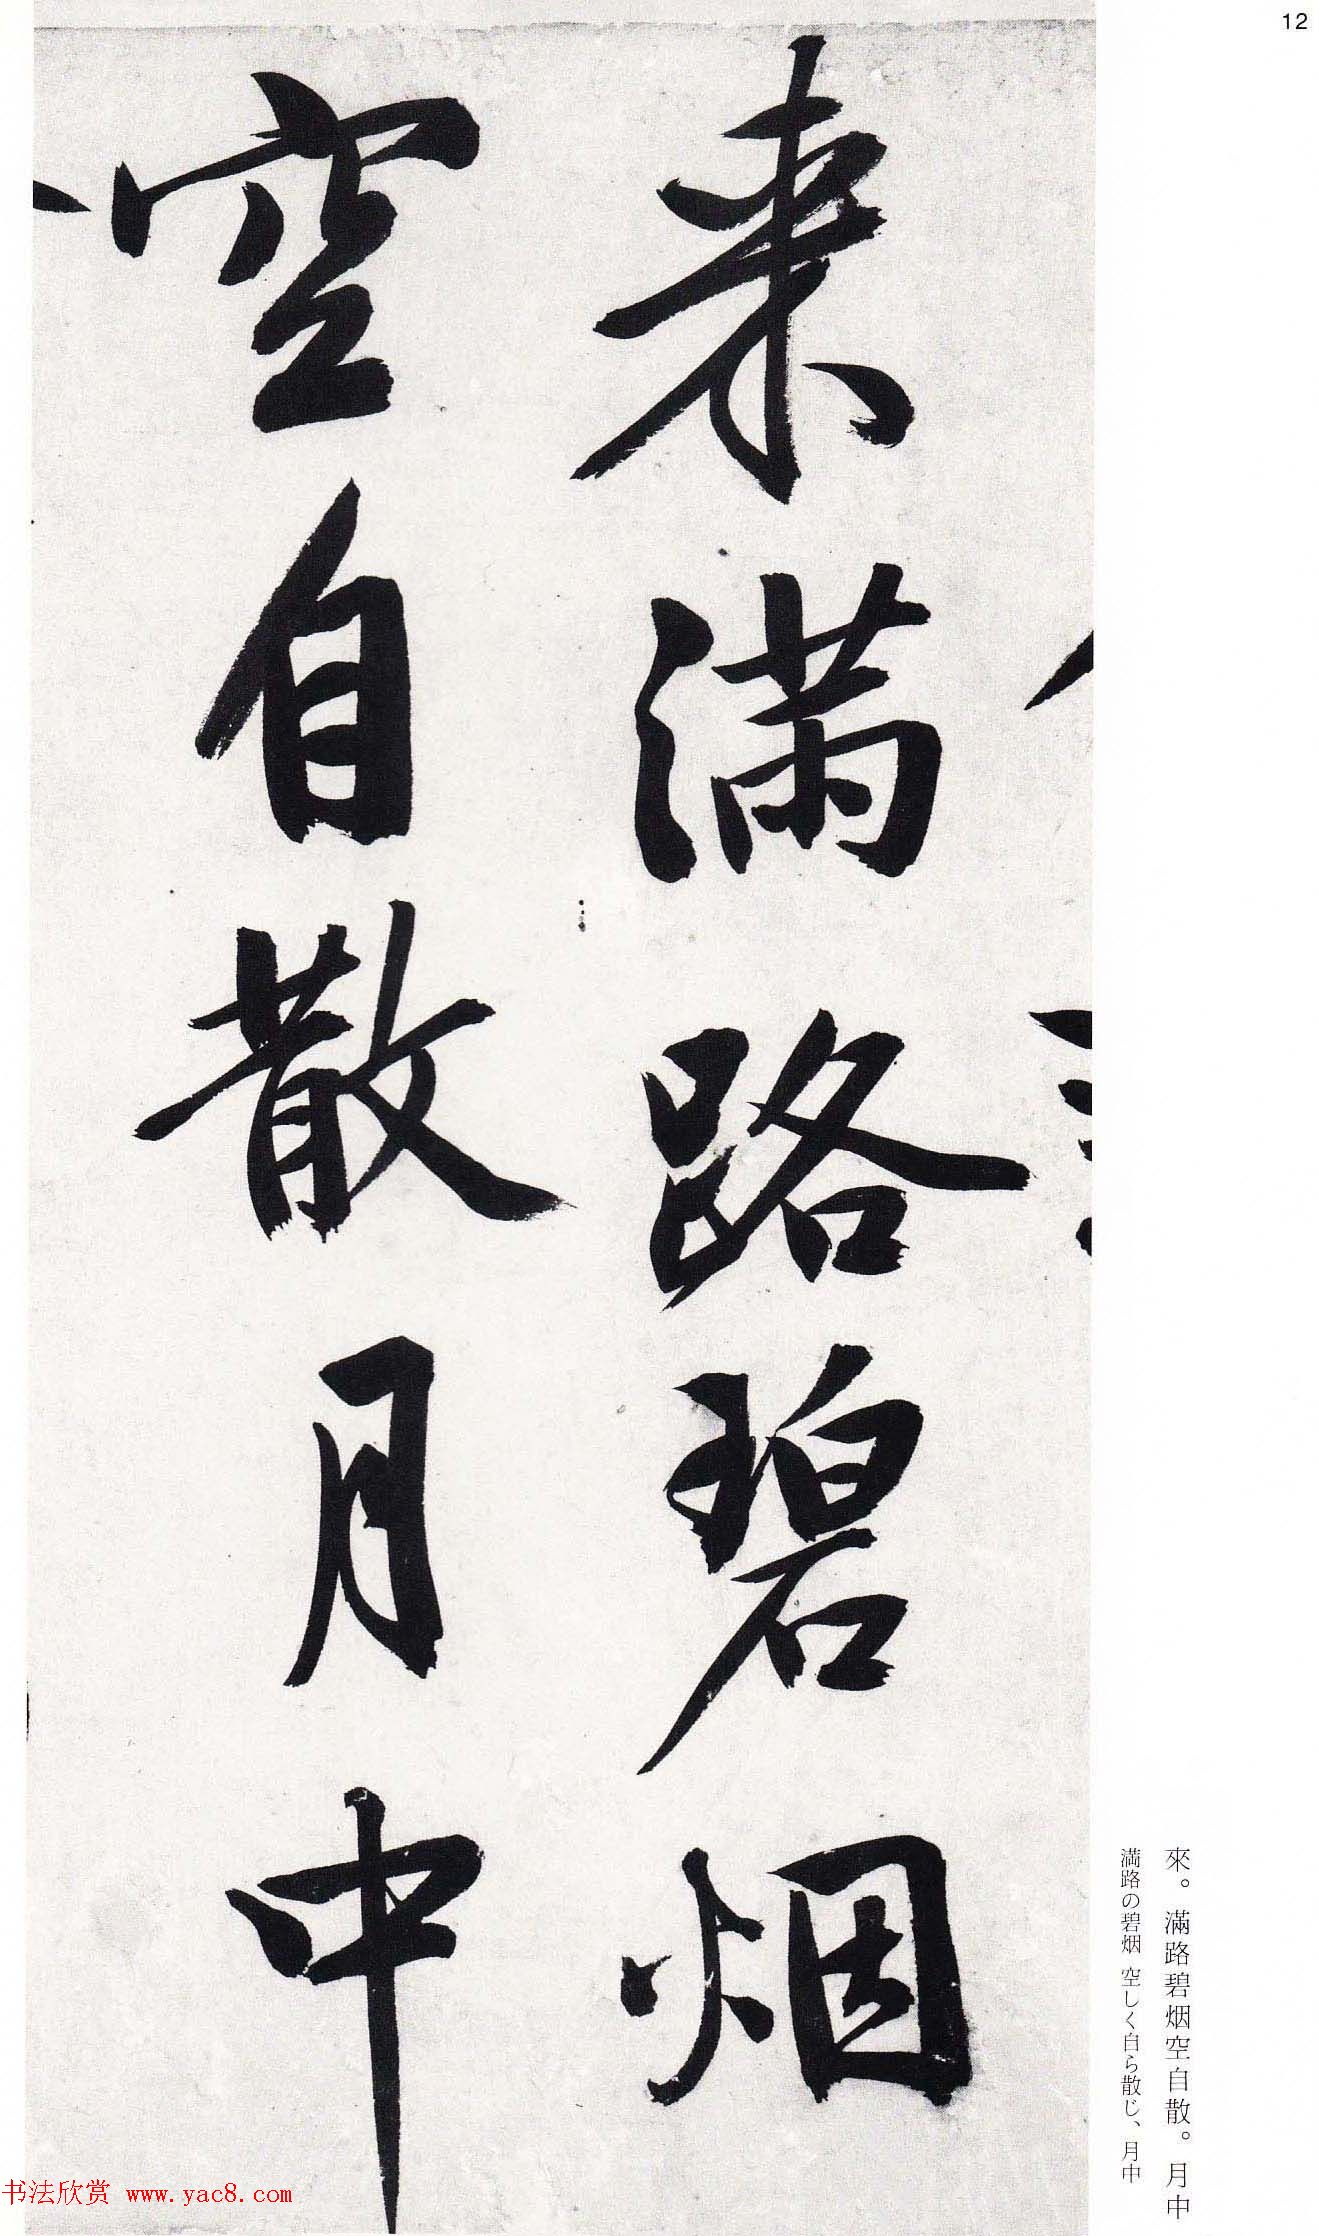 12
来滿路碧烟
空自散月中
來。滿路碧烟空自散。月中
満路の碧烟 空しく自ら散じ、月中
书法欣赏 www.yac8.com